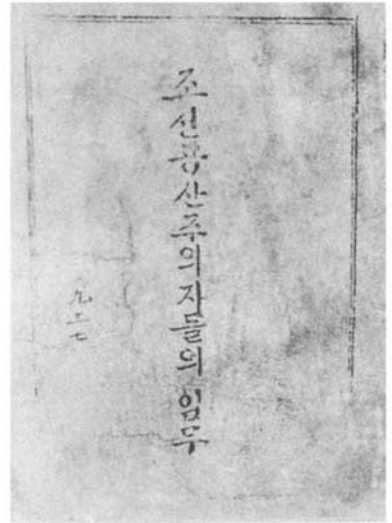 조선공산주의자들의 임무
九二七